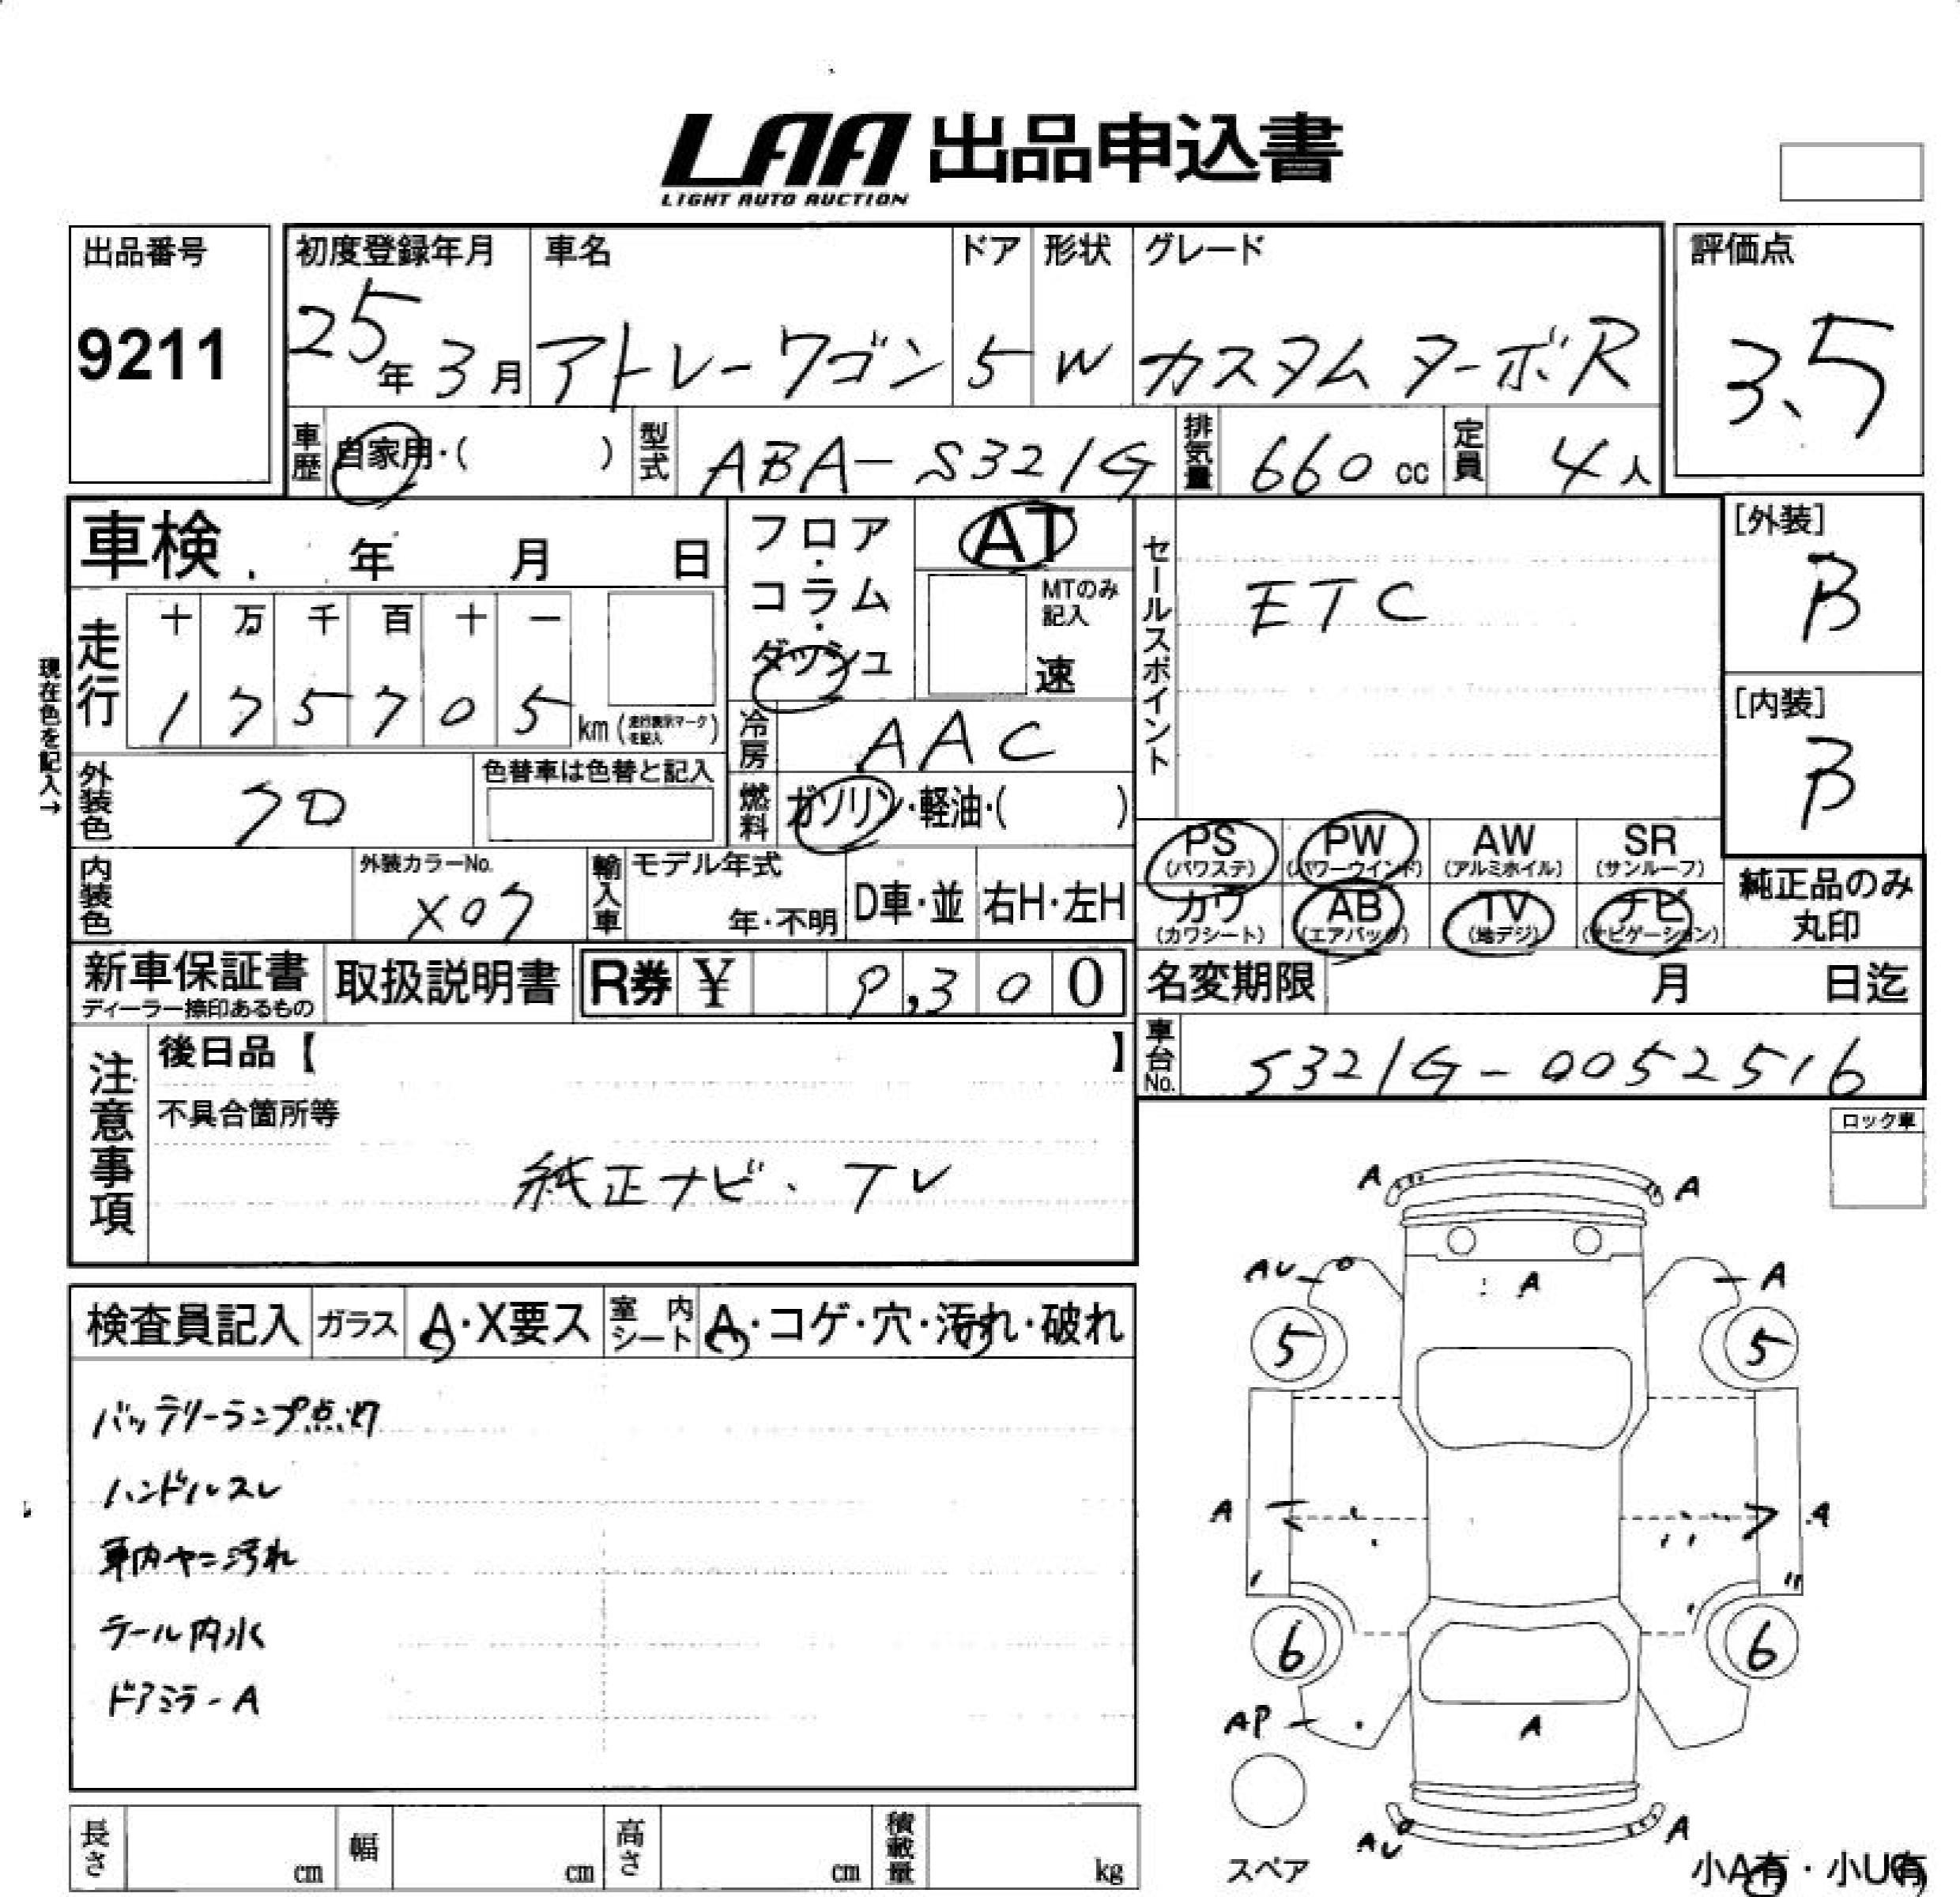 LAA 出品申込書
LIGHT AUTO AUCTION
出品番号
9211
初度登録年月
25年3月
車名
アトレーワゴン
ドア
5
形状
W
グレード
カスタムターボR
評価点
3.5
車歴 自家用・( )
型式 ABA-S321G
排気量 660cc
定員 4人
車検 年 月 日
フロア・コラム・ダッシュ
AT
MTのみ記入
速
セールスポイント
ETC
[外装]
B
[内装]
B
現在色を記入→
走行
十 万 千 百 十 一
1 7 5 7 0 5 km (走行表示マークを記入)
冷房 AAC
外装色 クロ
色替車は色替と記入
燃料 ガソリン・軽油・( )
PS (パワステ)
PW (パワーウインド)
AW (アルミホイル)
SR (サンルーフ)
カワ (カワシート)
AB (エアバック)
TV (地デジ)
ナビ (ナビゲーション)
純正品のみ丸印
内装色
外装カラーNo.
X07
輸入車
モデル年式
年・不明
D車・並
右H・左H
新車保証書
ディーラー捺印あるもの
取扱説明書
R券 ¥ 9,300
名変期限 月 日迄
車台No. S321G-0052516
注意事項
後日品【 】
不具合箇所等
純正ナビ、TV
ロック車
検査員記入
ガラス A・X要ス
室内シート A・コゲ・穴・汚れ・破れ
バッテリーランプ点灯
ハンドルスレ
車内ヤニ汚れ
テール内水
ドアミラーA
A A
AU A A
5 5
A A
6 6
AP A
AU A
スペア
小A有・小U有
長さ cm
幅 cm
高さ cm
積載量 kg